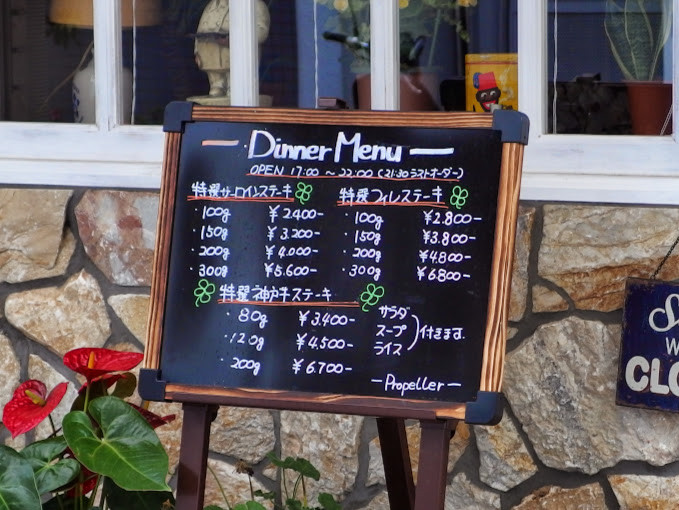 Dinner Menu
OPEN 17:00 ~ 22:00 (21:30 ラストオーダー)
特選サーロインステーキ
・100g ¥2.400-
・150g ¥3.200-
・200g ¥4.000-
・300g ¥5.600-
特選フィレステーキ
・100g ¥2.800-
・150g ¥3.800-
・200g ¥4.800-
・300g ¥6800-
特選神戸牛ステーキ
・80g ¥3.400-
・120g ¥4.500-
・200g ¥6.700-
サラダ
スープ
ライス
付きます.
-Propeller-
CLO